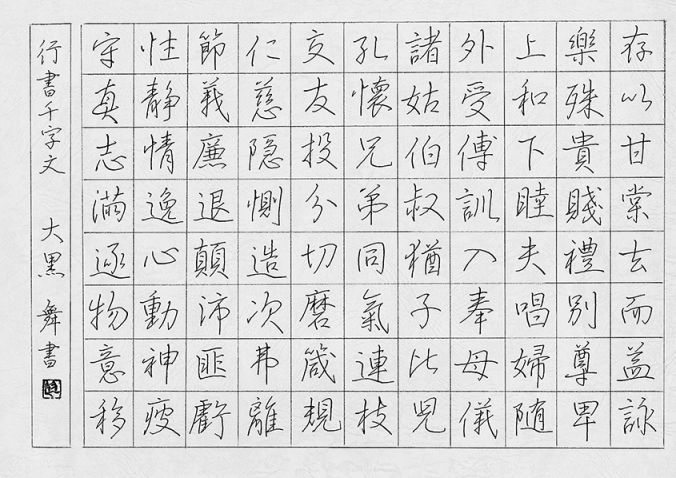 存以甘棠去而益詠
樂殊貴賤禮別尊卑
上和下睦夫唱婦随
外受傅訓入奉母儀
諸姑伯叔猶子比児
孔懐兄弟同氣連枝
交友投分切磨箴規
仁慈隠惻造次弗離
節義廉退顛沛匪虧
性静情逸心動神疲
守真志満逐物意移
行書千字文 大黒舞書